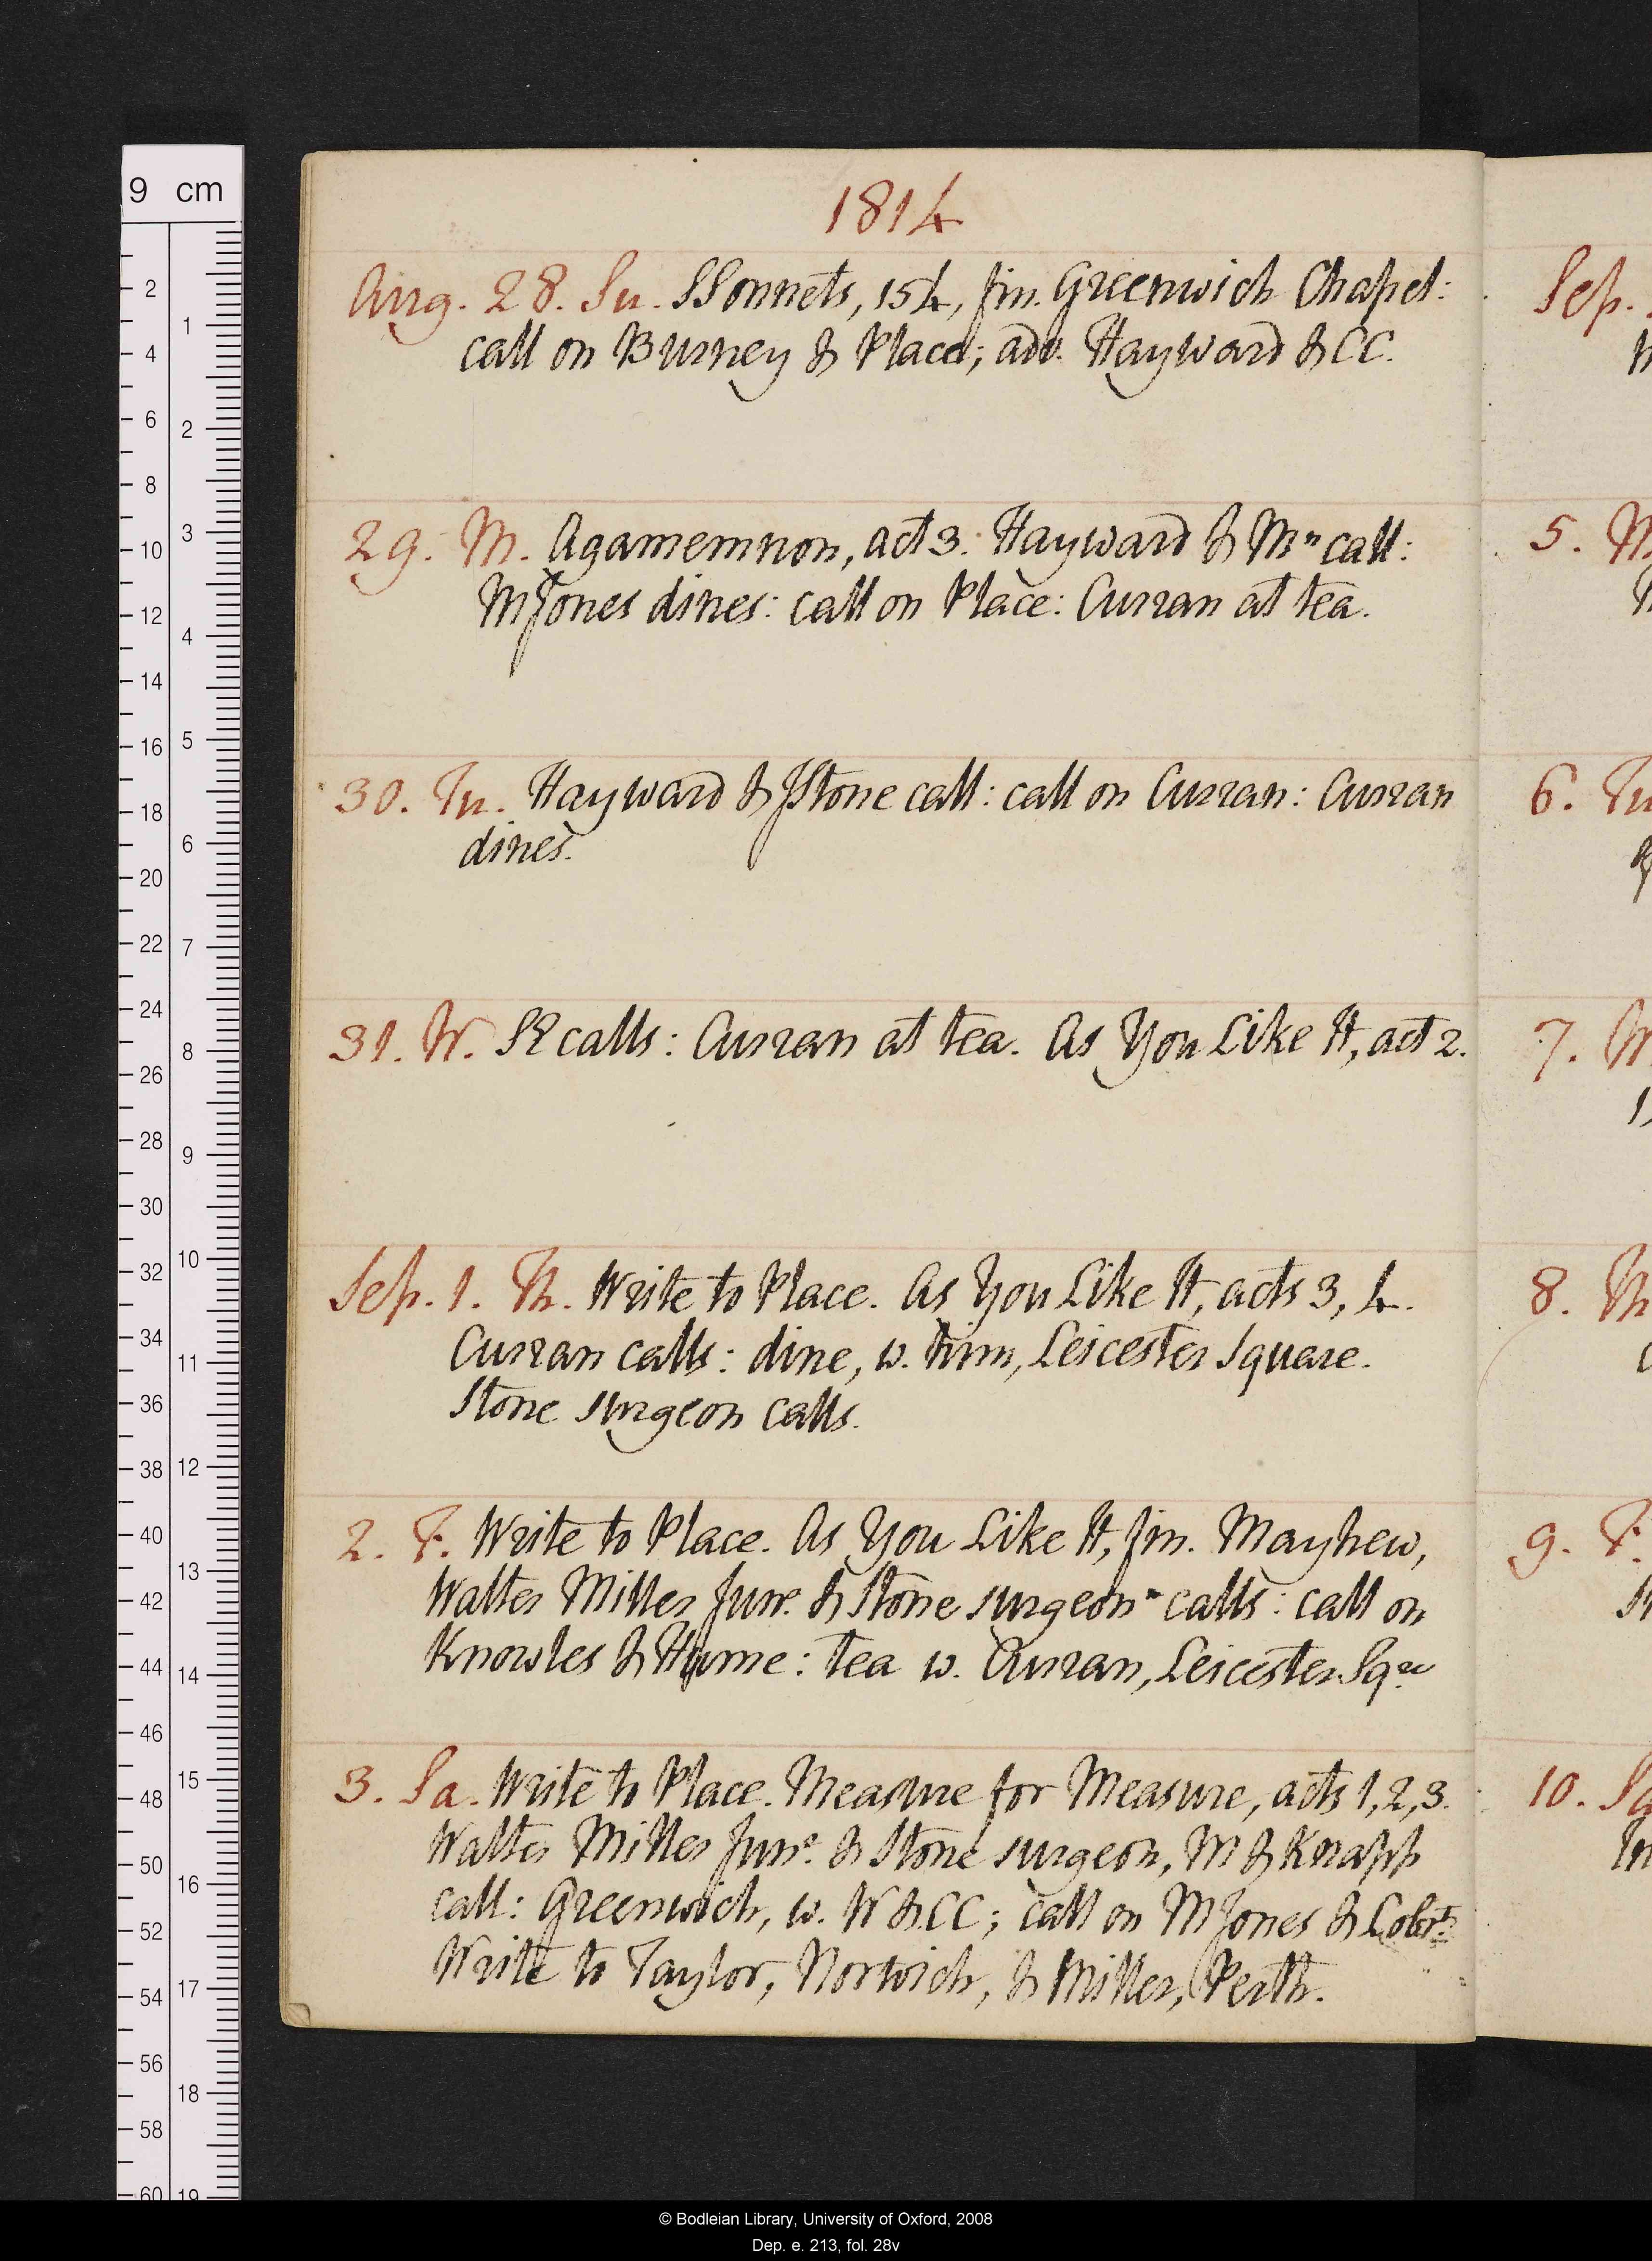 1814
Aug. 28. Su. SSonnets, 154, fin. Greenwich Chapel:
call on Burney & Place; adv. Hayward & CC.
29. M. Agamemnon, act 3. Hayward & Mrs call:
MJones dines: call on Place: Curran at tea.
30. Tu. Hayward & JStone call: call on Curran: Curran
dines.
31. W. SE calls: Curran at tea. As You Like It, act 2.
Sep. 1. Th. Write to Place. As You Like It, acts 3, 4.
Curran calls: dine, w. him, Leicester Square.
Stone surgeon calls.
2. F. Write to Place. As You Like It, fin. Mayhew,
Walter Miller Junr. & Stone surgeon calls: call on
Knowles & Hume: tea w. Curran, Leicester Sqre
3. Sa. Write to Place. Measure for Measure, acts 1, 2, 3.
Walter Miller Junr. & Stone surgeon, M & Knapp
call: Greenwich, w. W & CC; call on MJones &
Write to Taylor, Norwich, & Miller, Perth.
Sep.
5. M
6. Tu
7. W
8. Th
9. F.
10. Sa
9 cm
2
4
6
8
10
12
14
16
18
20
22
24
26
28
30
32
34
36
38
40
42
44
46
48
50
52
54
56
58
60
1
2
3
4
5
6
7
8
9
10
11
12
13
14
15
16
17
18
19
© Bodleian Library, University of Oxford, 2008
Dep. e. 213, fol. 28v